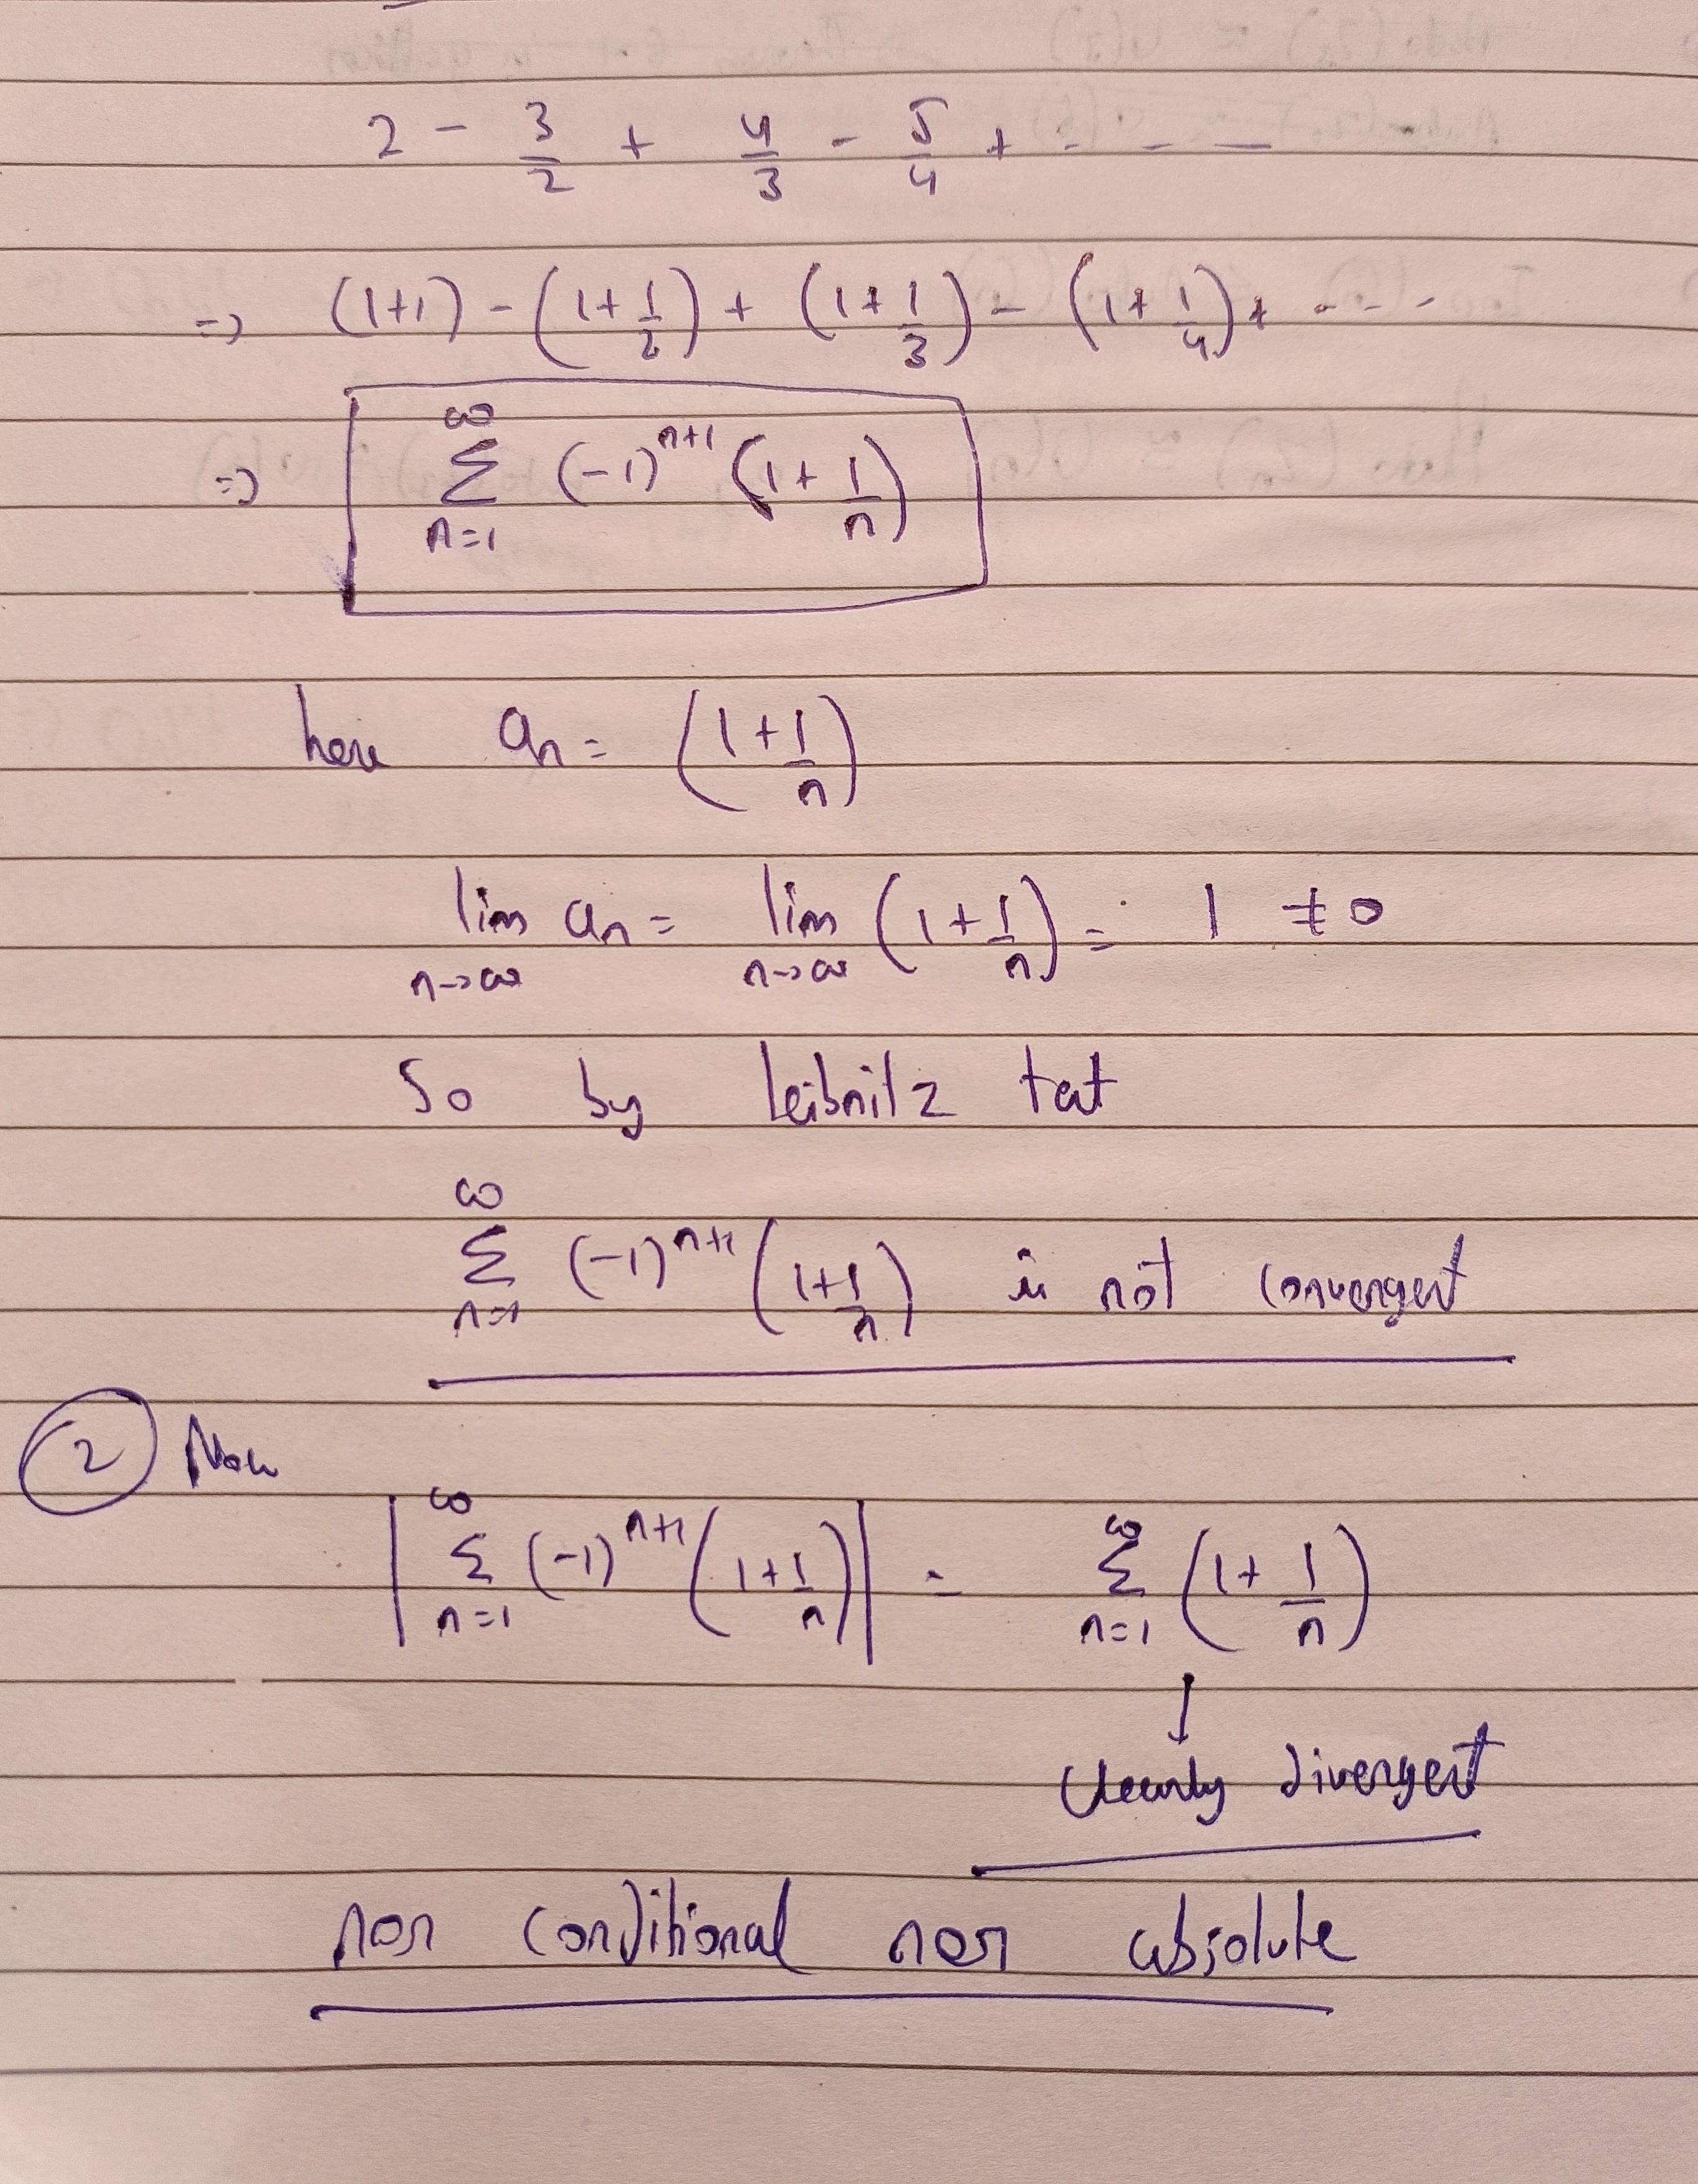 2 - 3/2 + 4/3 - 5/4 + - - -
=> (1+1) - (1+1/2) + (1+1/3) - (1+1/4) + - - - -
=> ∞ Σ n=1 (-1)^{n+1} (1+1/n)
here an = (1+1/n)
lim n→∞ an = lim n→∞ (1+1/n) = 1 ≠ 0
So by leibnitz test
∞ Σ n=1 (-1)^{n+1} (1+1/n) is not convergent
② Now
| ∞ Σ n=1 (-1)^{n+1} (1+1/n) | = ∞ Σ n=1 (1+1/n)
↓
Clearly divergent
non conditional nor absolute